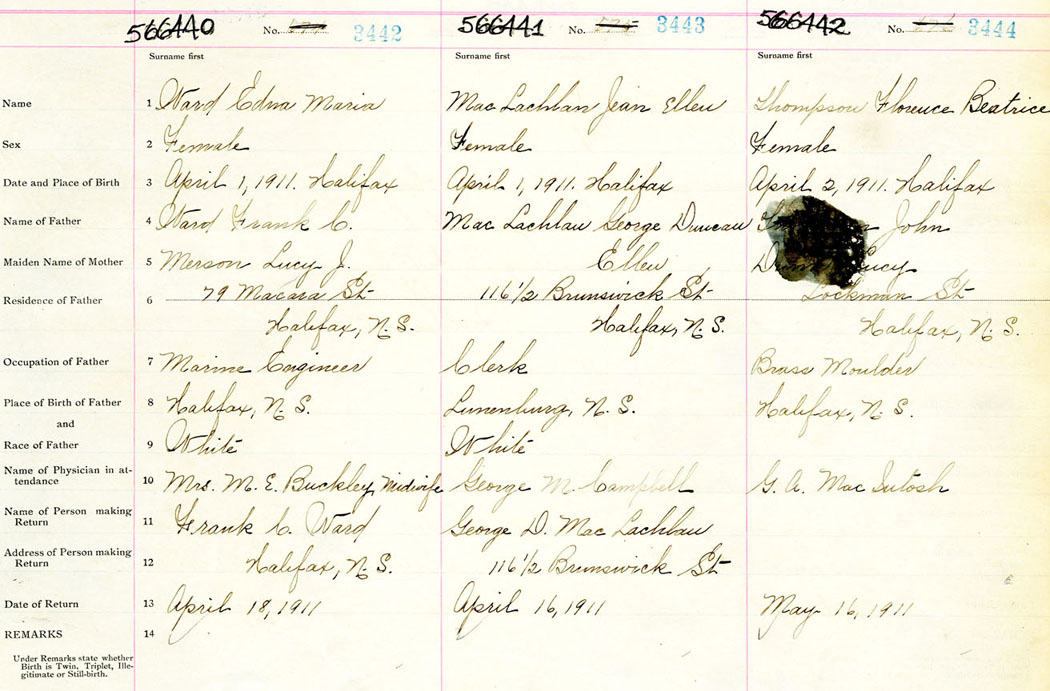 566440 No. 3442 566441 No. 3443 566442 No. 3444
Surname first Surname first Surname first
Name 1 Ward Edna Maria Mac Lachlan Jean Ellen Thompson Florence Beatrice
Sex 2 Female Female Female
Date and Place of Birth 3 April 1, 1911. Halifax April 1, 1911. Halifax April 2, 1911. Halifax
Name of Father 4 Ward Frank C. Mac Lachlan George Duncan John
Maiden Name of Mother 5 Merson Lucy J. Ellen Lucy
Residence of Father 6 79 Macara St 116 1/2 Brunswick St Lockman St
Halifax, N.S. Halifax, N.S. Halifax, N.S.
Occupation of Father 7 Marine Engineer Clerk Brass Moulder
Place of Birth of Father 8 Halifax, N.S. Lunenburg, N.S. Halifax, N.S.
and
Race of Father 9 White White
Name of Physician in at-
tendance 10 Mrs. M. E. Buckley, Midwife George M. Campbell G. A. Mac Intosh
Name of Person making
Return 11 Frank C. Ward George D. Mac Lachlan
Address of Person making
Return 12 Halifax, N.S. 116 1/2 Brunswick St
Date of Return 13 April 18, 1911 April 16, 1911 May 16, 1911
REMARKS 14
Under Remarks state whether
Birth is Twin, Triplet, Ille-
gitimate or Still-birth.